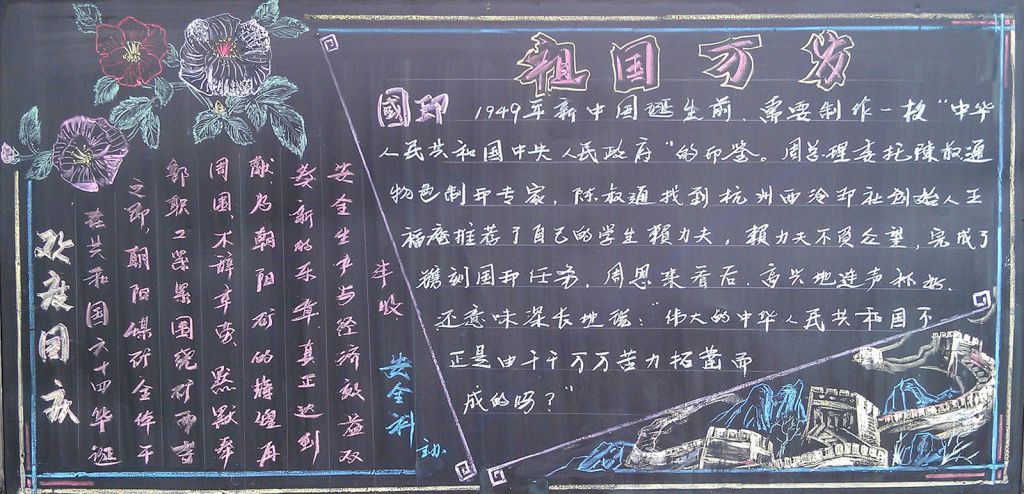 祖国万岁
國印 1949年新中国诞生前、需要制作一枚“中华
人民共和国中央人民政府”的印鉴。周总理委托陈叔通
物色制印专家,陈叔通找到杭州西泠印社创始人王
福庵推荐了自己的学生賴力夫。賴力夫不负众望,完成了
镌刻国印任务。周恩来看后,高兴地连声称好,
还意味深长地说:“伟大的中华人民共和国不
正是由千千万万苦力拓凿而
成的吗?”
欢度国庆
在共和国六十四华诞
之即,朝阳煤矿全体干
部职工紧紧围绕矿两
周围、不辞辛劳、默默奉
献,为朝阳矿的辉煌再
发新的乐章,真正达到
安全生产与经济效益双
丰收
安全科 办